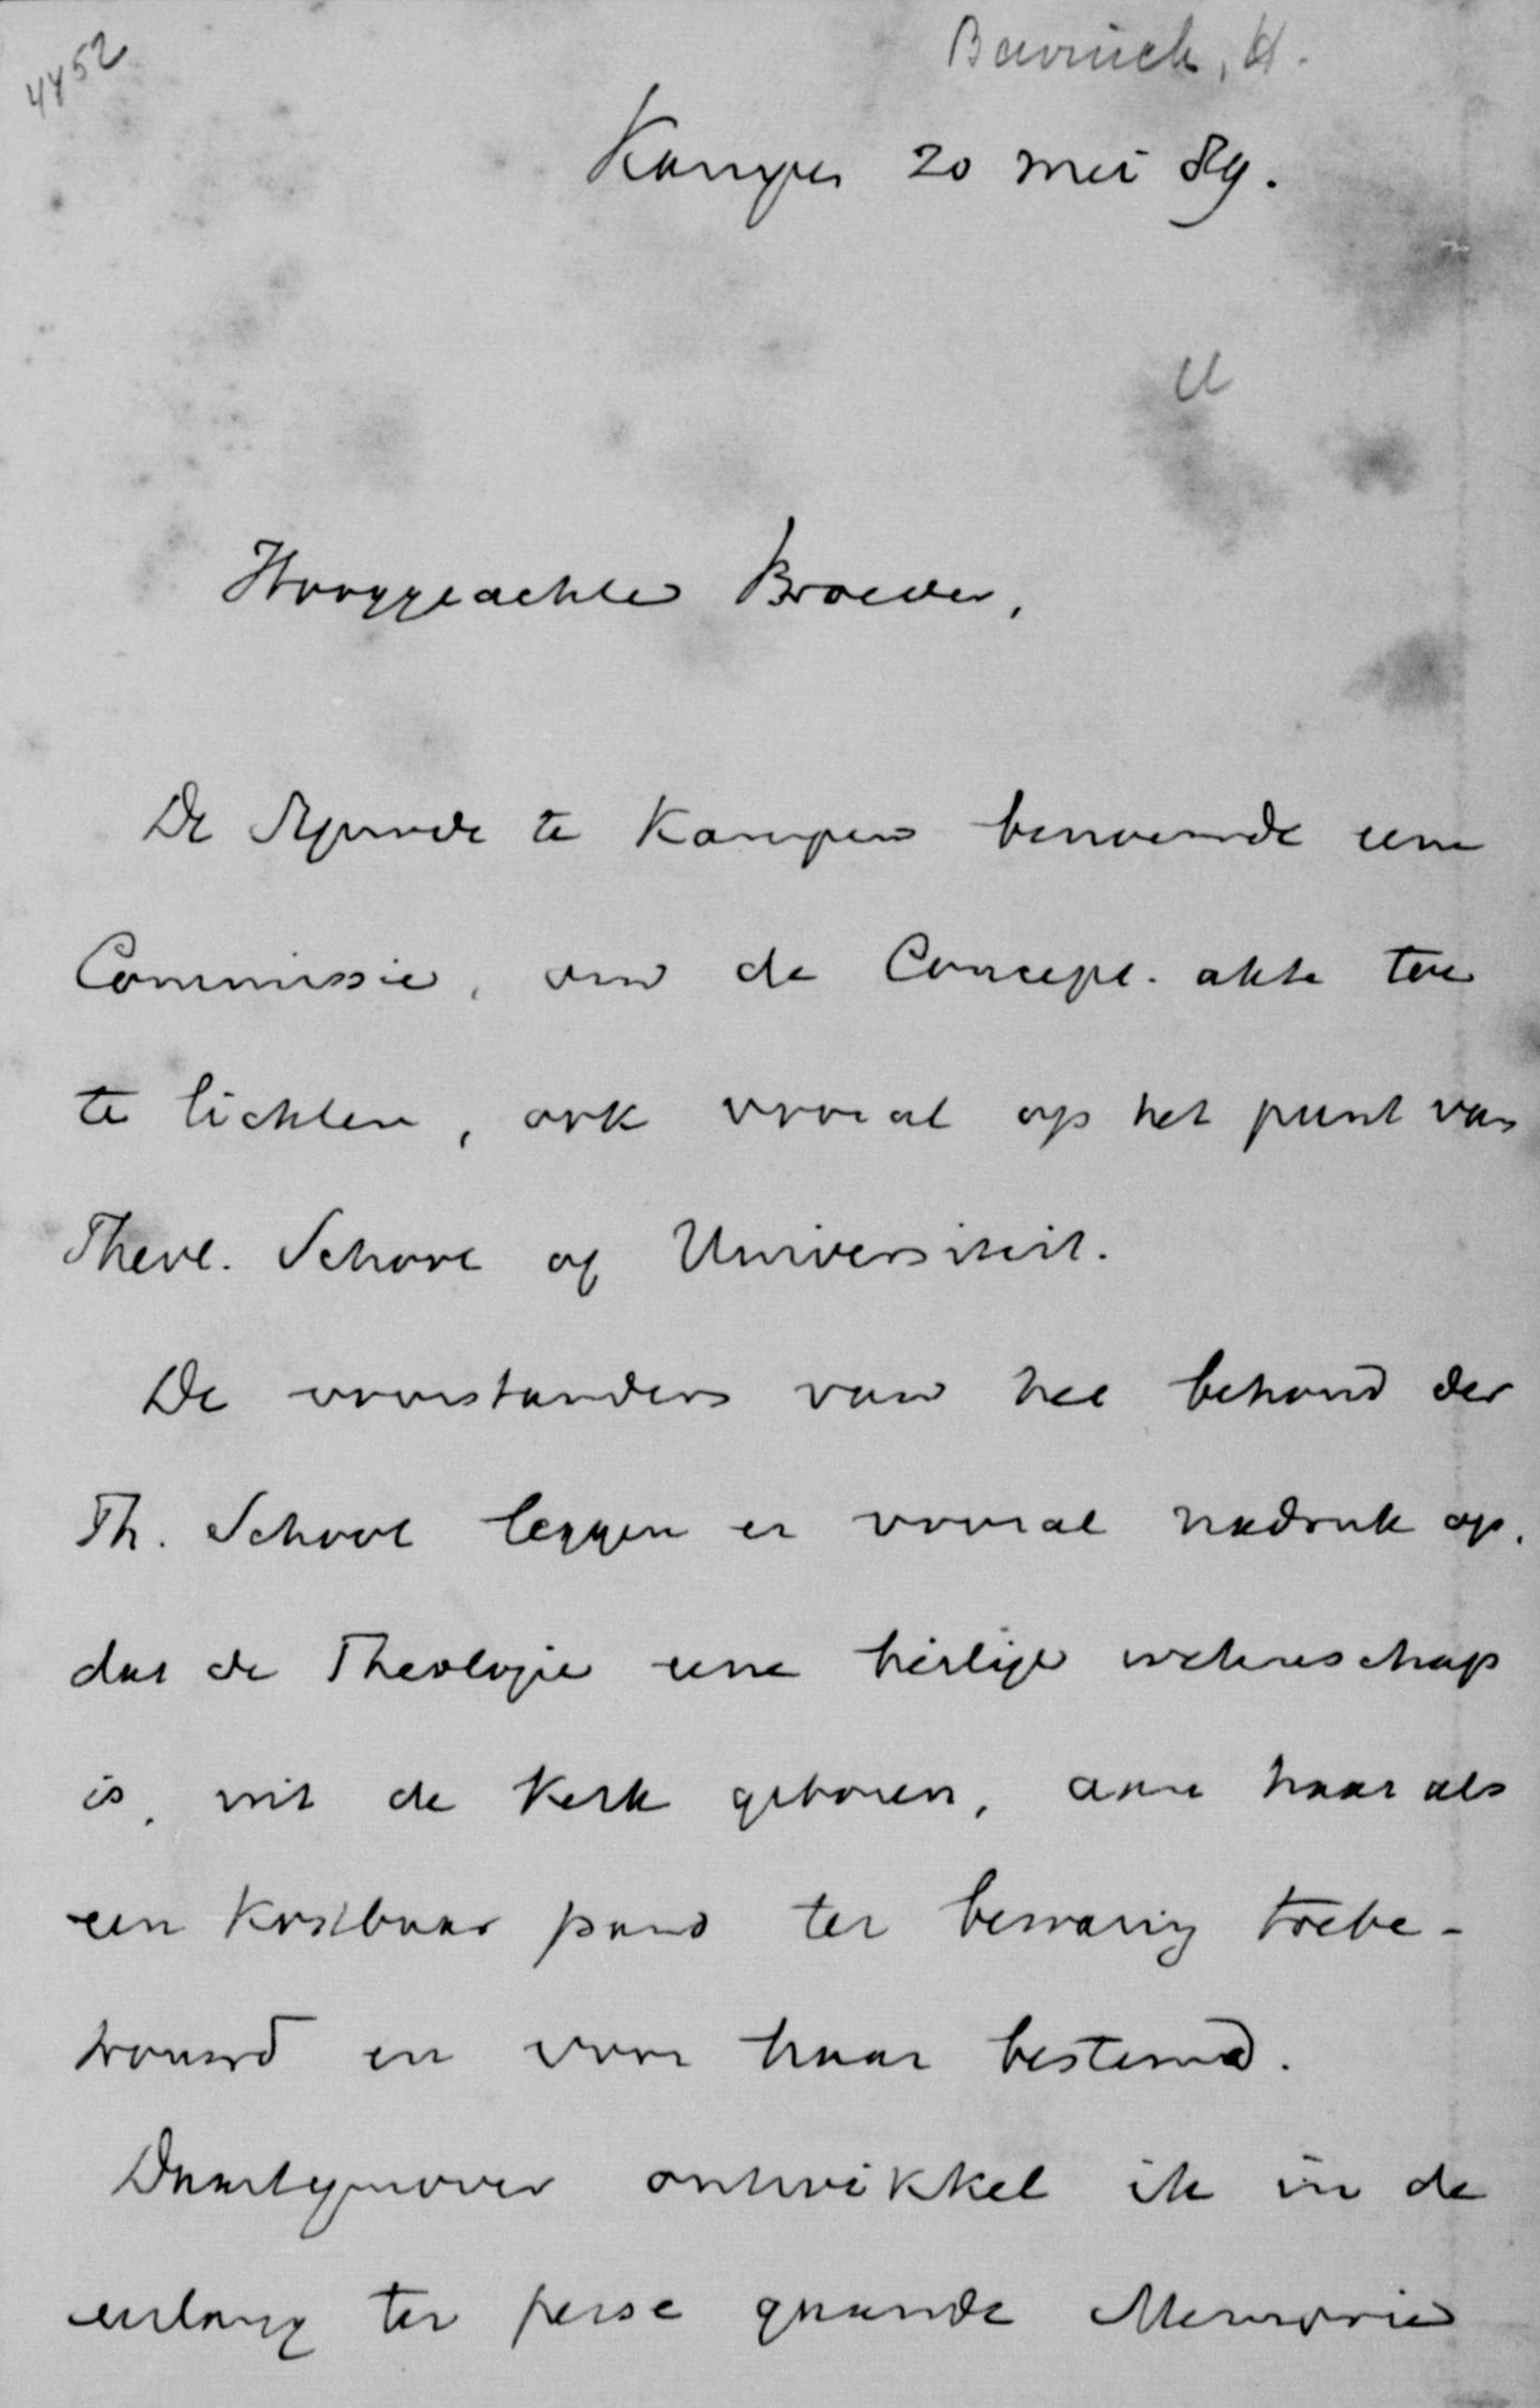 4452
Bavinck, H.
Kampen 20 Mei 89.
U
Hooggeachte Broeder,
De Synode te Kampen benoemde eene
Commissie, om de Concept-akte toe
te lichten, ook vooral op het punt van
Theol. School of Universiteit.
De voorstanders van het behoud der
Th. School leggen er vooral nadruk op,
dat de Theologie eene heilige wetenschap
is, uit de Kerk geboren, aan haar als
een kostbaar pand ter bewaring toebe-
trouwd en voor haar bestemd.
Daartegenover ontwikkel ik in de
eerlang ter perse gaande Memorie